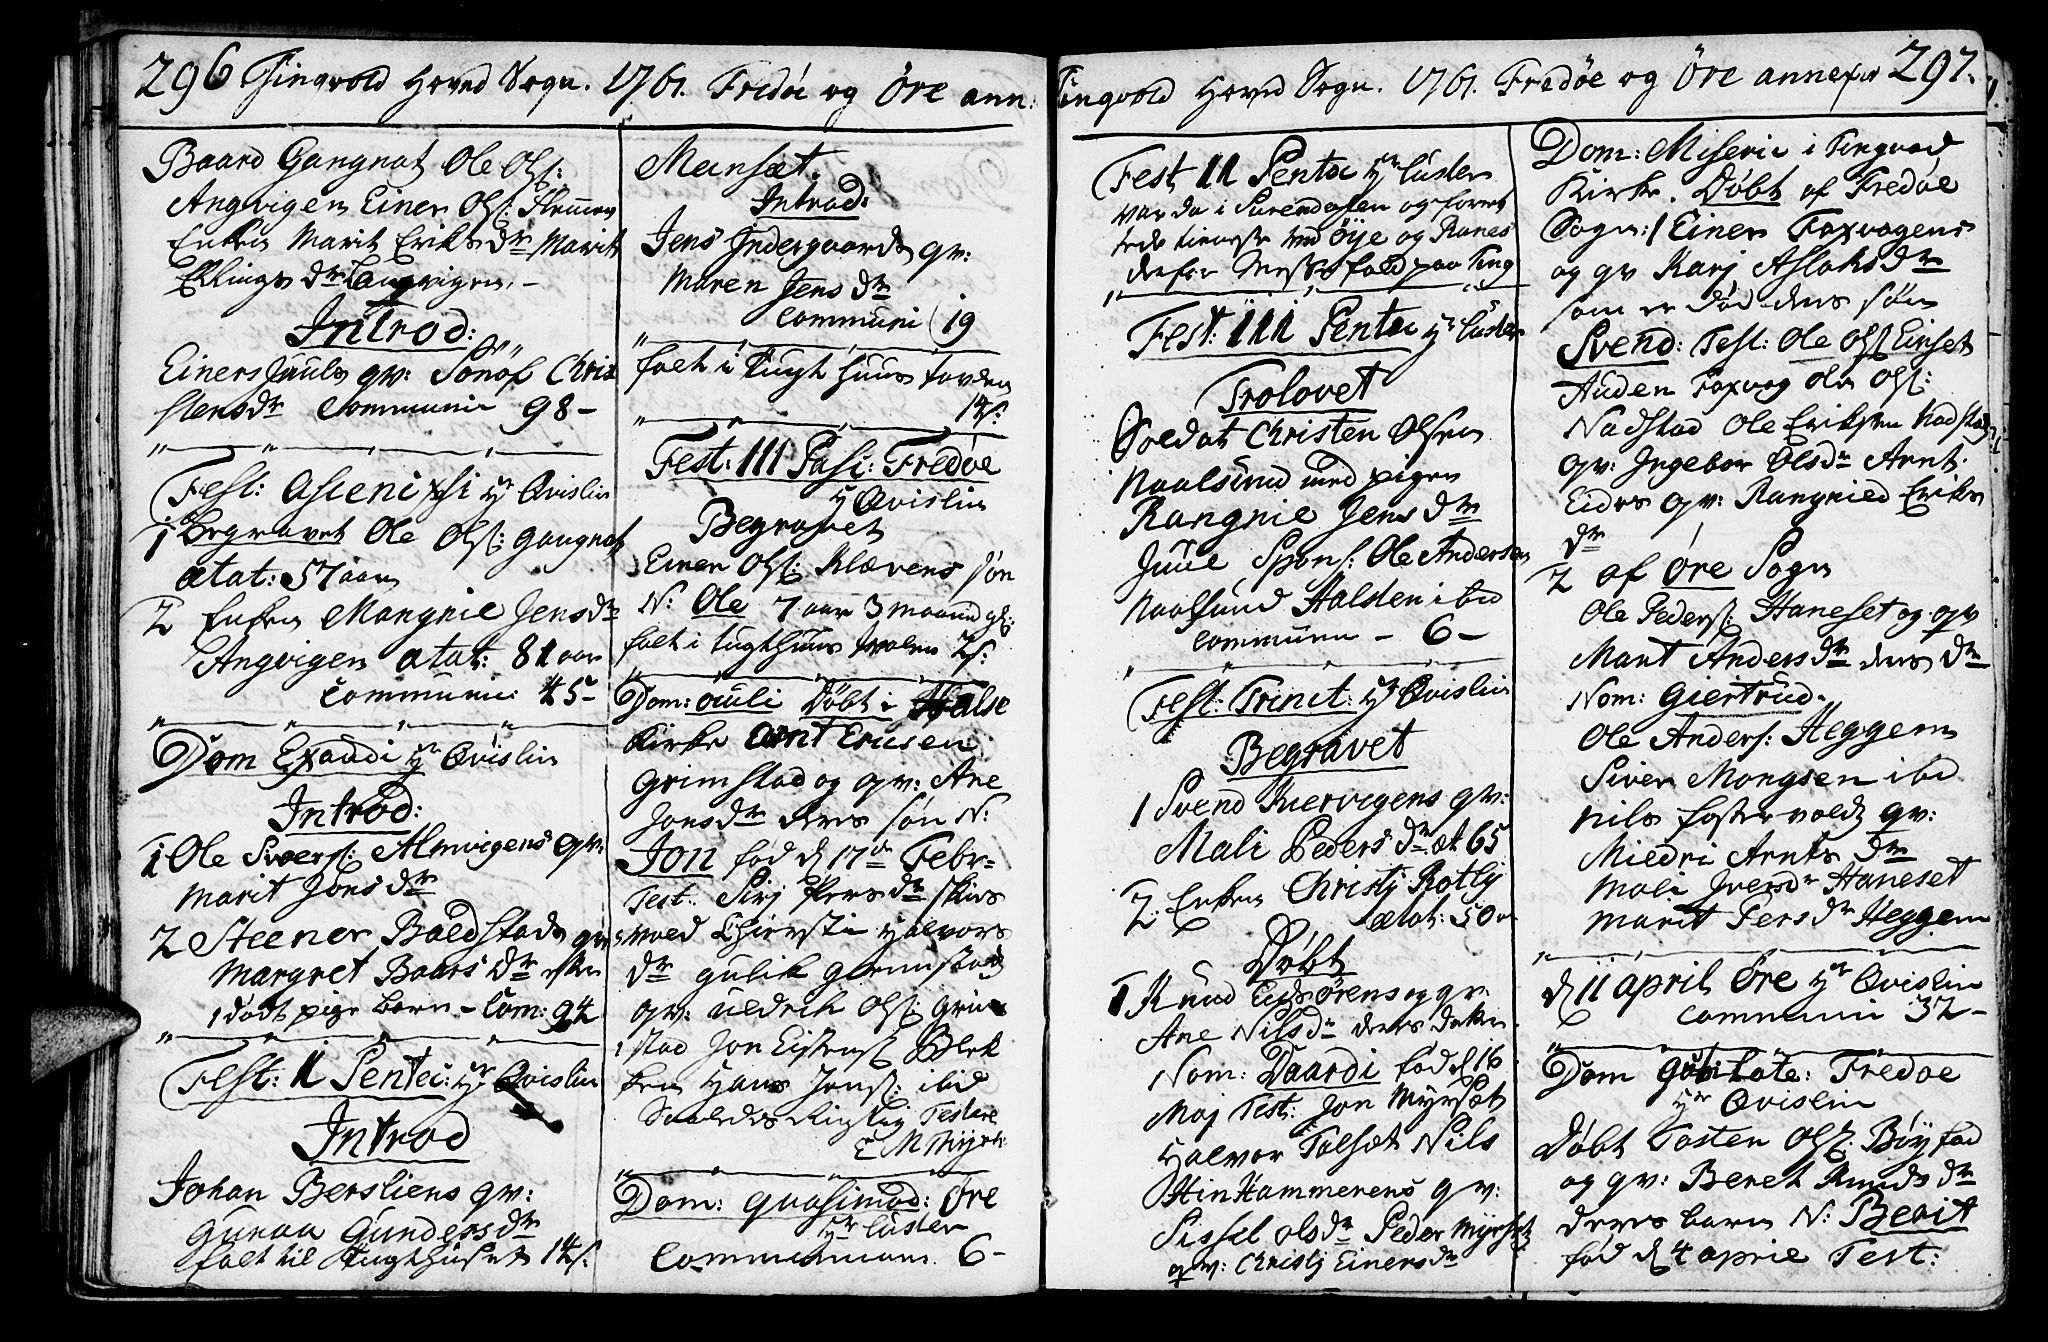 296 Tingvold Hoved Sogn. 1761. Fredøe og Öre ann:
Baard Gangnat Ole Ols:
Angvigen Einer Ols:
Enken Marit Eriks dr Marit
Ellings dr Langvigen. -
Introd:
Einers Juuls qv: Sönof Chri
stens dr Communi 98 -
Fest: Ascensi Hr Qvislin
1 Begravet Ole Ols: Gangnat
ætat: 57 aar
2 Enken Mangnie Jens dr
Angvigen ætat: 81 aar
Communi: 45 -
Dom Exaudi Hr Qvislin
Introd:
1 Ole Sivers: Almvigens qv:
Marit Jons dr
2 Steener Boldstads qv:
Margret Baars dr
1 dødt pige barn - Com: 94
Fest: II Pentec: Hr Qvislin
Introd
Johan Bersliens qv:
Gunaa Gunders dr
falt til Tugthuset 14 s:
Meusæt.
Introd:
Jens Indergaards qv:
Maren Jens dr
Communi 19
falt i Tugt huus tavlen
14 s:
Fest: III Pasc: Fredöe
Hr Qvislin
Begravet
Einer Ols: Klævens søn
N: Ole 7 aar 3 maand
falt i tugthuus tavlen 2 s:
Dom: Jubili Døbt i Halse
Kirke Arnt Ericsen
Grimstad og qv: Ane
Jons dr deres søn N:
Jon fød d 17de Febr-
Test: Sirj Pers dr
Chiersti Halvors
dr Gulik Grimstad
qv: Uldrik Ols: Grim
stad Jon Eistens: Blek
ken Hans Jons: ibid
Saaledes Rigtig Testere
Dom: Quasimod: Øre
Hr Lüsler
Communicani 6 -
Tingvold Hoved Sogn. 1761. Fredøe og Öre annexer 297.
Fest II Pentec Hr Lüsler
var da i Surendalen og forret
tede tieneste ved Öye og Ranes
derfor Messefald paa Ting
Fest: III Pentec Hr Lüsler
Trolovet
Soldat Christen Olsen
Naalsund med pigen
Rangnie Jens dr
Juul Spons: Ole Andersen
Naalsund Halsten ibid
Communi - 6 -
Fest: Trinit: Hr Qvislin
Begravet
1 Svend Kiervigens qv:
Mali Peders dr æt 65
2: Enken Christj Rotlj
ætat: 50
Døbt
1 Knud Eidsörens og qv:
Ane Nils dr deres datter
Nom: Daardi fød d 16
Maj Test: Jon Myrsæt
Halvor Talsæt Nils
HinHammerens qv:
Sissel ols dr Peder Myrsæt
qv: Christj Einers dr
Dom: Miseric i Tingvold
Kirke. Døbt af Fredøe
Sogn: 1 Einer Foxvogens
og qv Karj Aslaks dr
som er død deres søn
Svend: Test: Ole Ols Einset
Auden Foxvog Ole Ols:
Nadstad Ole Eriksen Nadstad
qv: Ingebor Ols dr Arnt
Eides qv: Rangnied Eriks
dr
2 af Øre Sogn
Ole Peders: Haneset og qv
Marit Anders dr deres dr
Nom: Giertrud.
Ole Anders: Heggem
Siver Mongsen ibid
Nils Fostervolds qv:
Miedri Arnts dr
Mali Ivers dr Haneset
Marit Pers dr Heggem
d 11 april Øre Hr Qvislin
Communi 32 -
Dom Jubilate: Fredøe
Hr Qvislin
Døbt Tosten Ols: Böy
og qv: Beret Knuds dr
deres barn N: Berit
fød d 4 aprile Test: